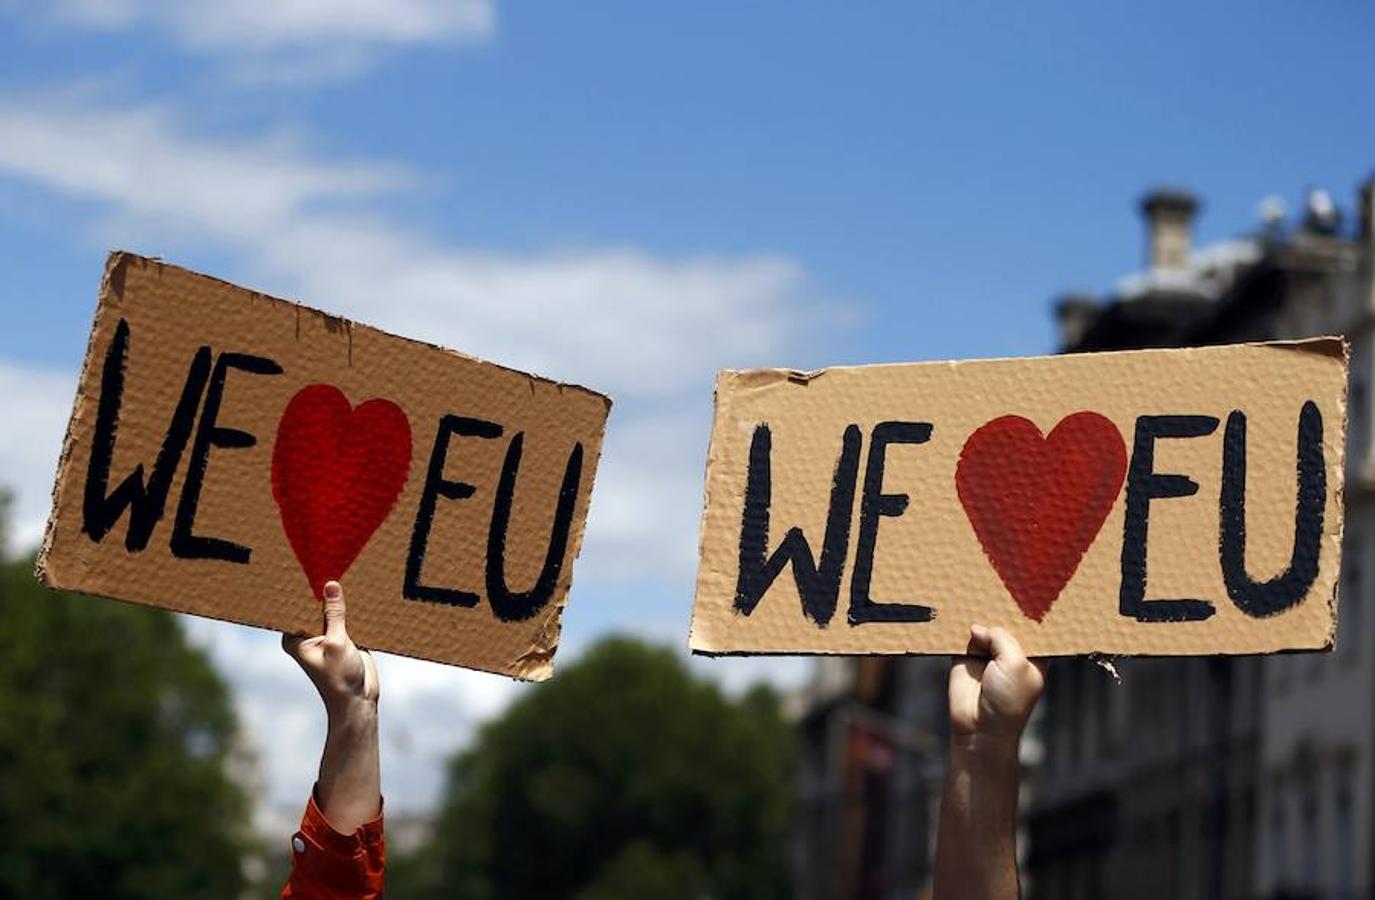 WE ♥ EU
WE ♥ EU